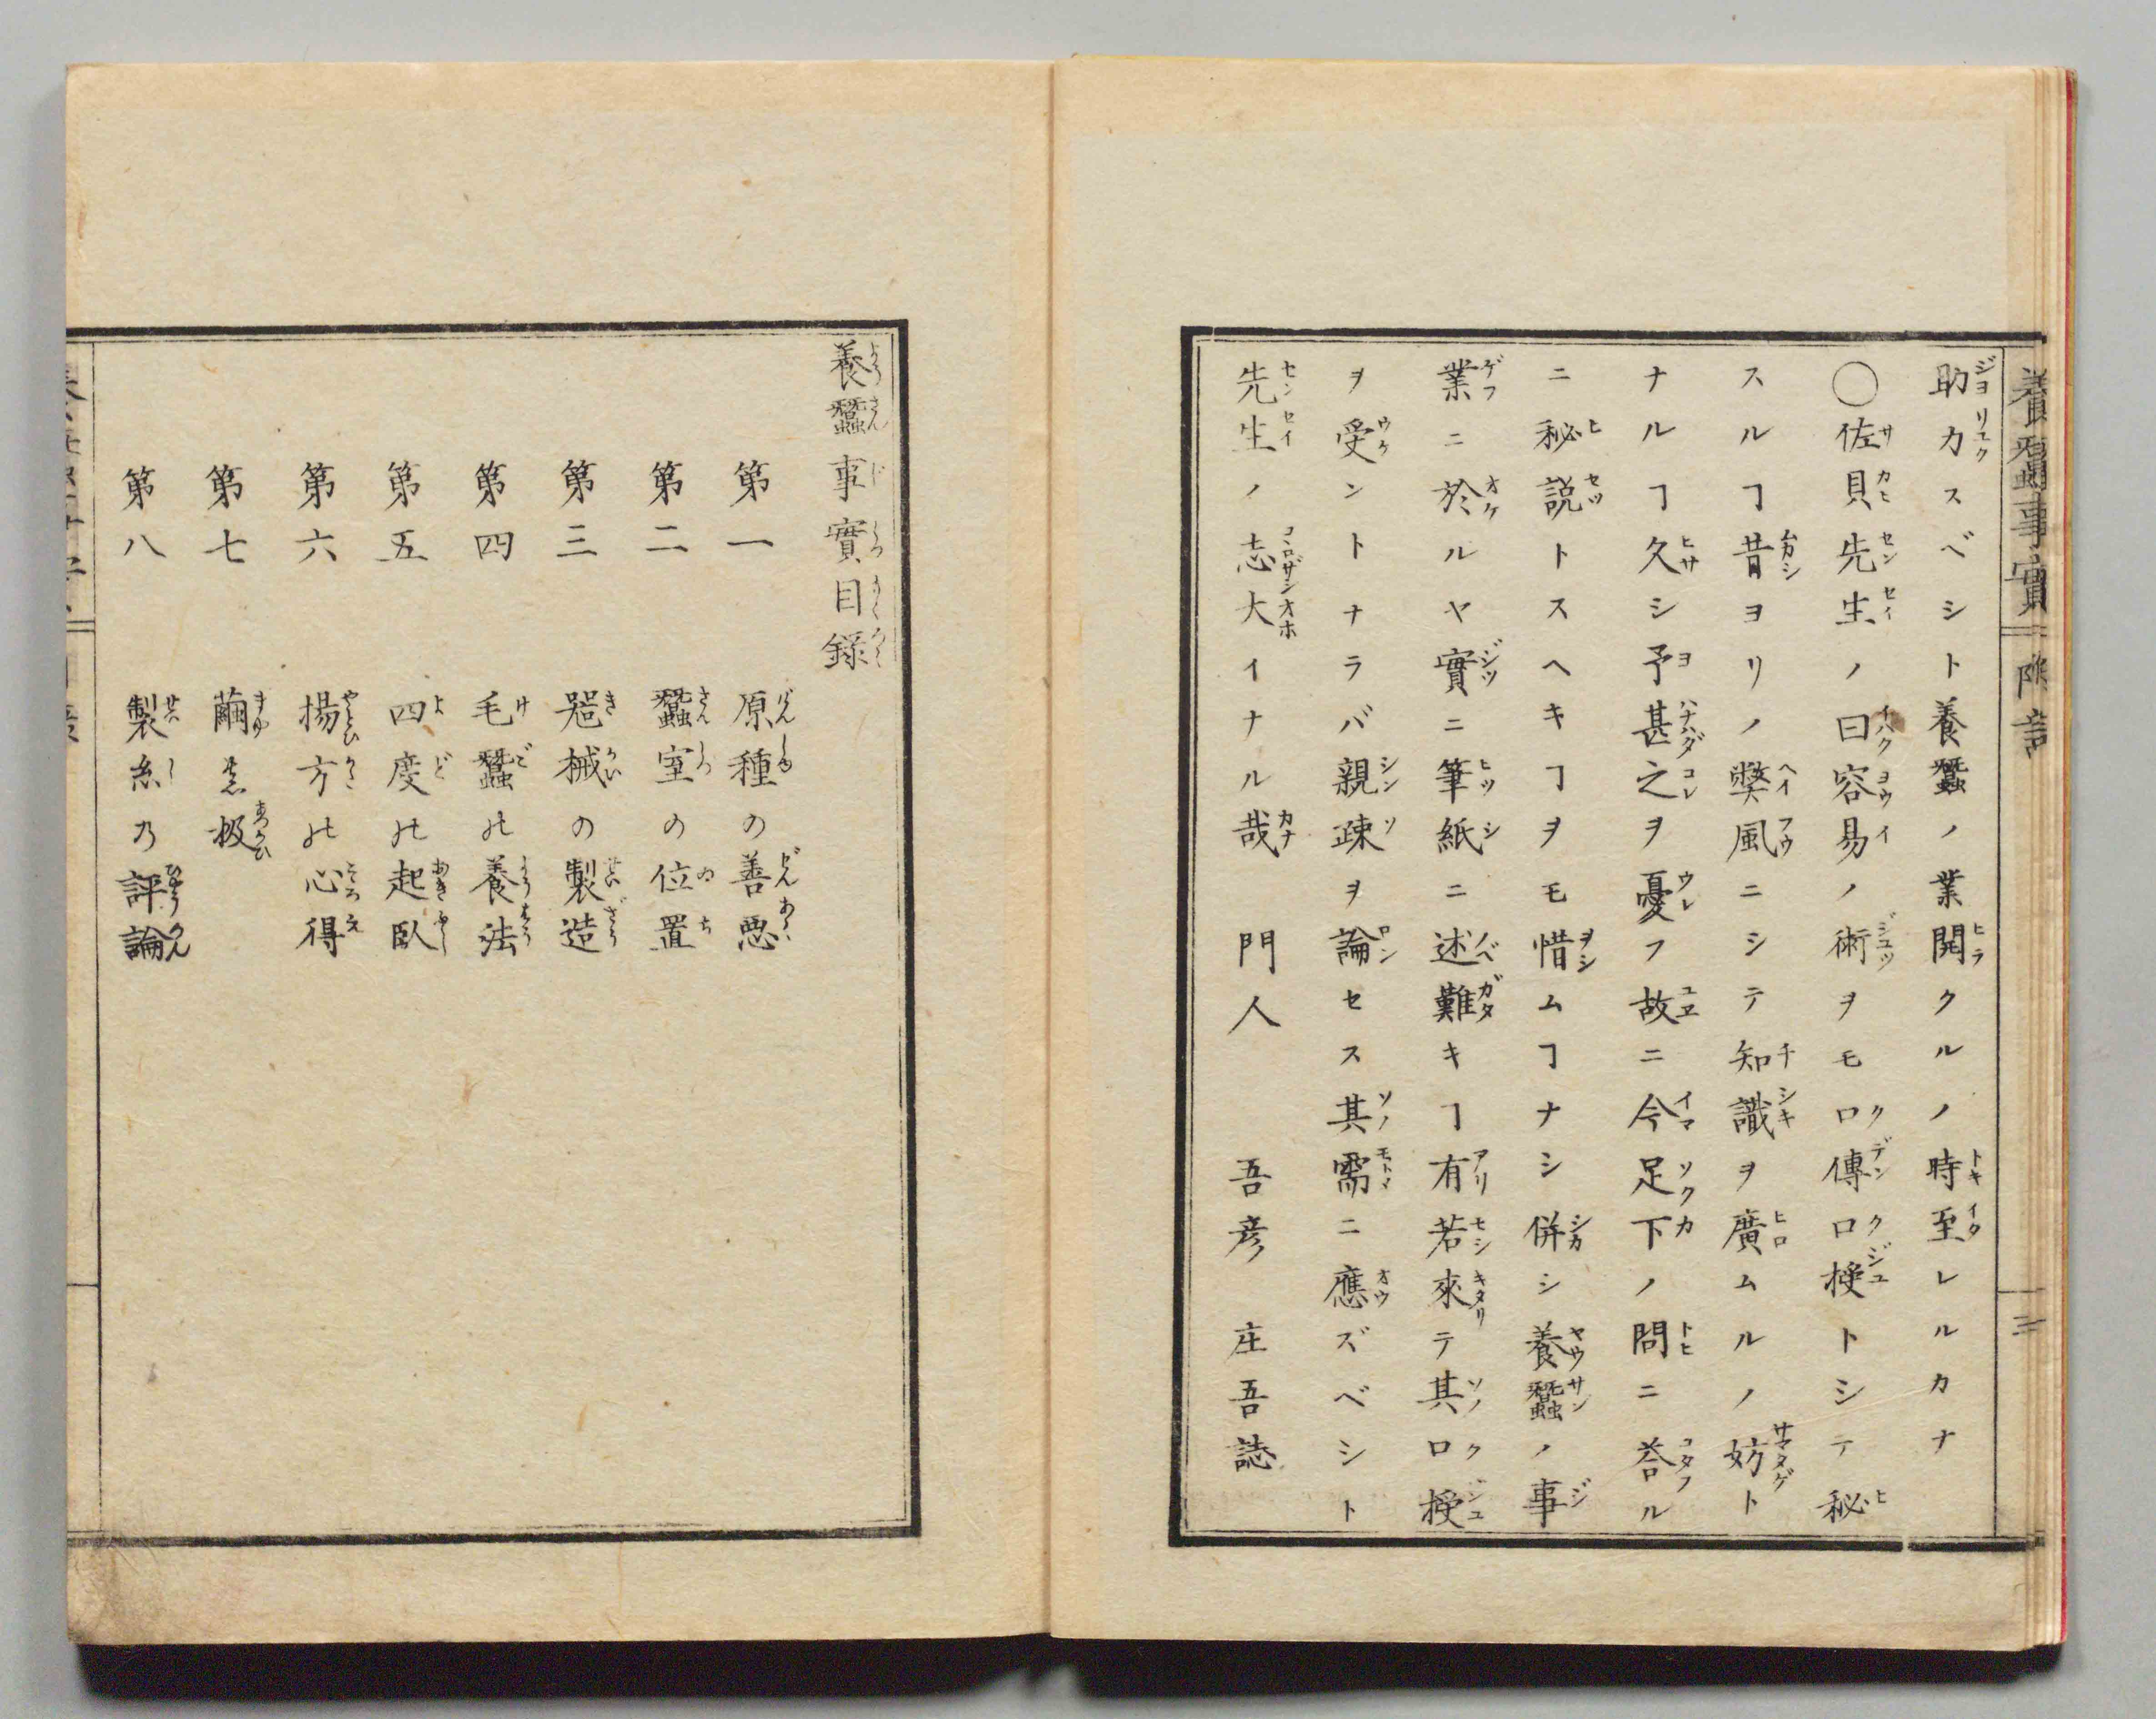 養蠶事實 附言 三
助力スベシト養蠶ノ業開クルノ時至レルカナ
○佐貝先生ノ曰容易ノ術ヲモ口傳口授トシテ秘
スルヿ昔ヨリノ弊風ニシテ知識ヲ廣ムルノ妨ト
ナルヿ久シ予甚之ヲ憂フ故ニ今足下ノ問ニ荅ル
ニ秘説トスヘキヿヲモ惜ムヿナシ併シ養蠶ノ事
業ニ於ルヤ實ニ筆紙ニ述難キヿ有若來テ其口授
ヲ受ントナラバ親疎ヲ論セス其需ニ應ズベシト
先生ノ志大イナル哉 門人 吾彦 庄吾誌
養蠶事實目録
第一 原種の善悪
第二 蠶室の位置
第三 噐械の製造
第四 毛蠶の養法
第五 四度の起臥
第六 揚方の心得
第七 繭の扱
第八 製糸乃評論